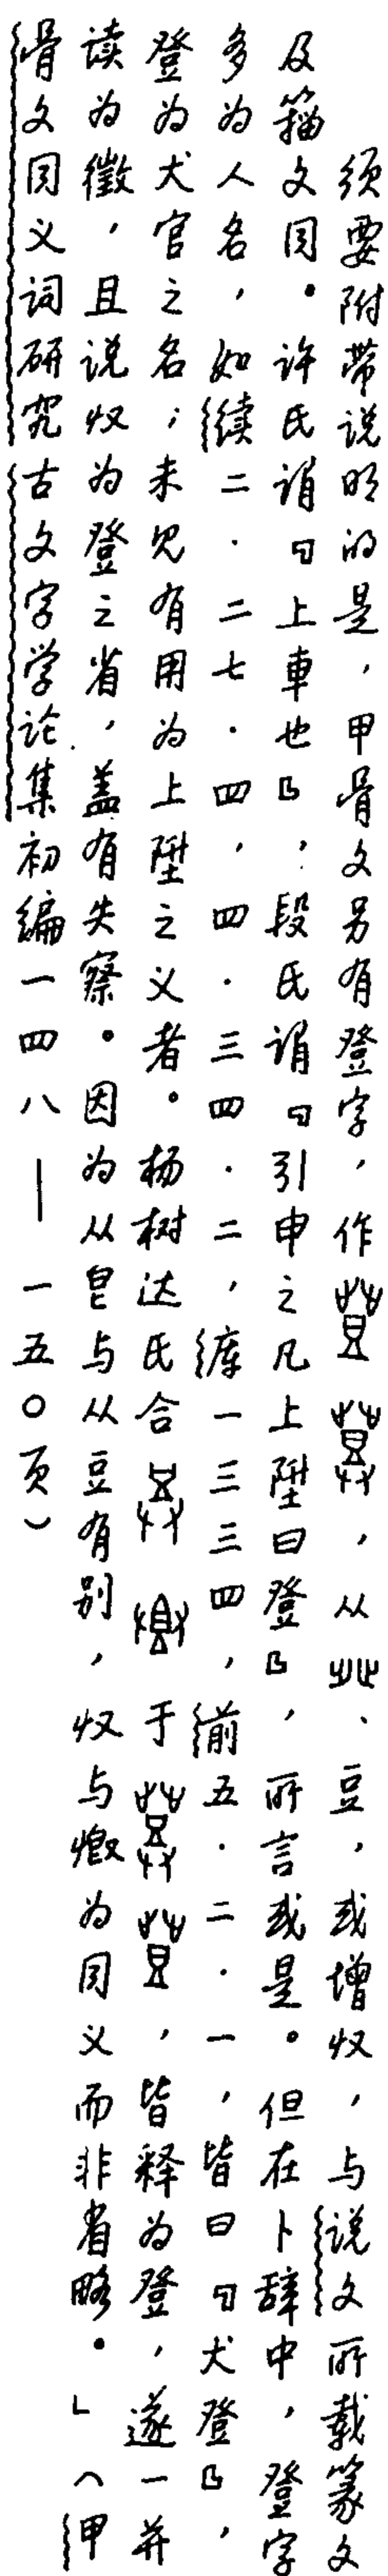 须要附带说明的是，甲骨文另有登字，作，从癶、豆，或增収，与说文所载篆文
及籀文同。许氏谓『上車也』，段氏谓『引申之凡上陞曰登』，所言或是。但在卜辞中，登字
多为人名，如续二·二七·四，四·三四·二，库一三三四，前五·二·一，皆曰『犬登』，
登为犬官之名；未见有用为上陞之义者。杨树达氏合于，皆释为登，遂一并
读为徵，且说収为登之省，盖有失察。因为从皀与从豆有别，収与为同义而非省略。」（甲
骨文同义词研究 古文字学论集初编一四八——一五〇页）